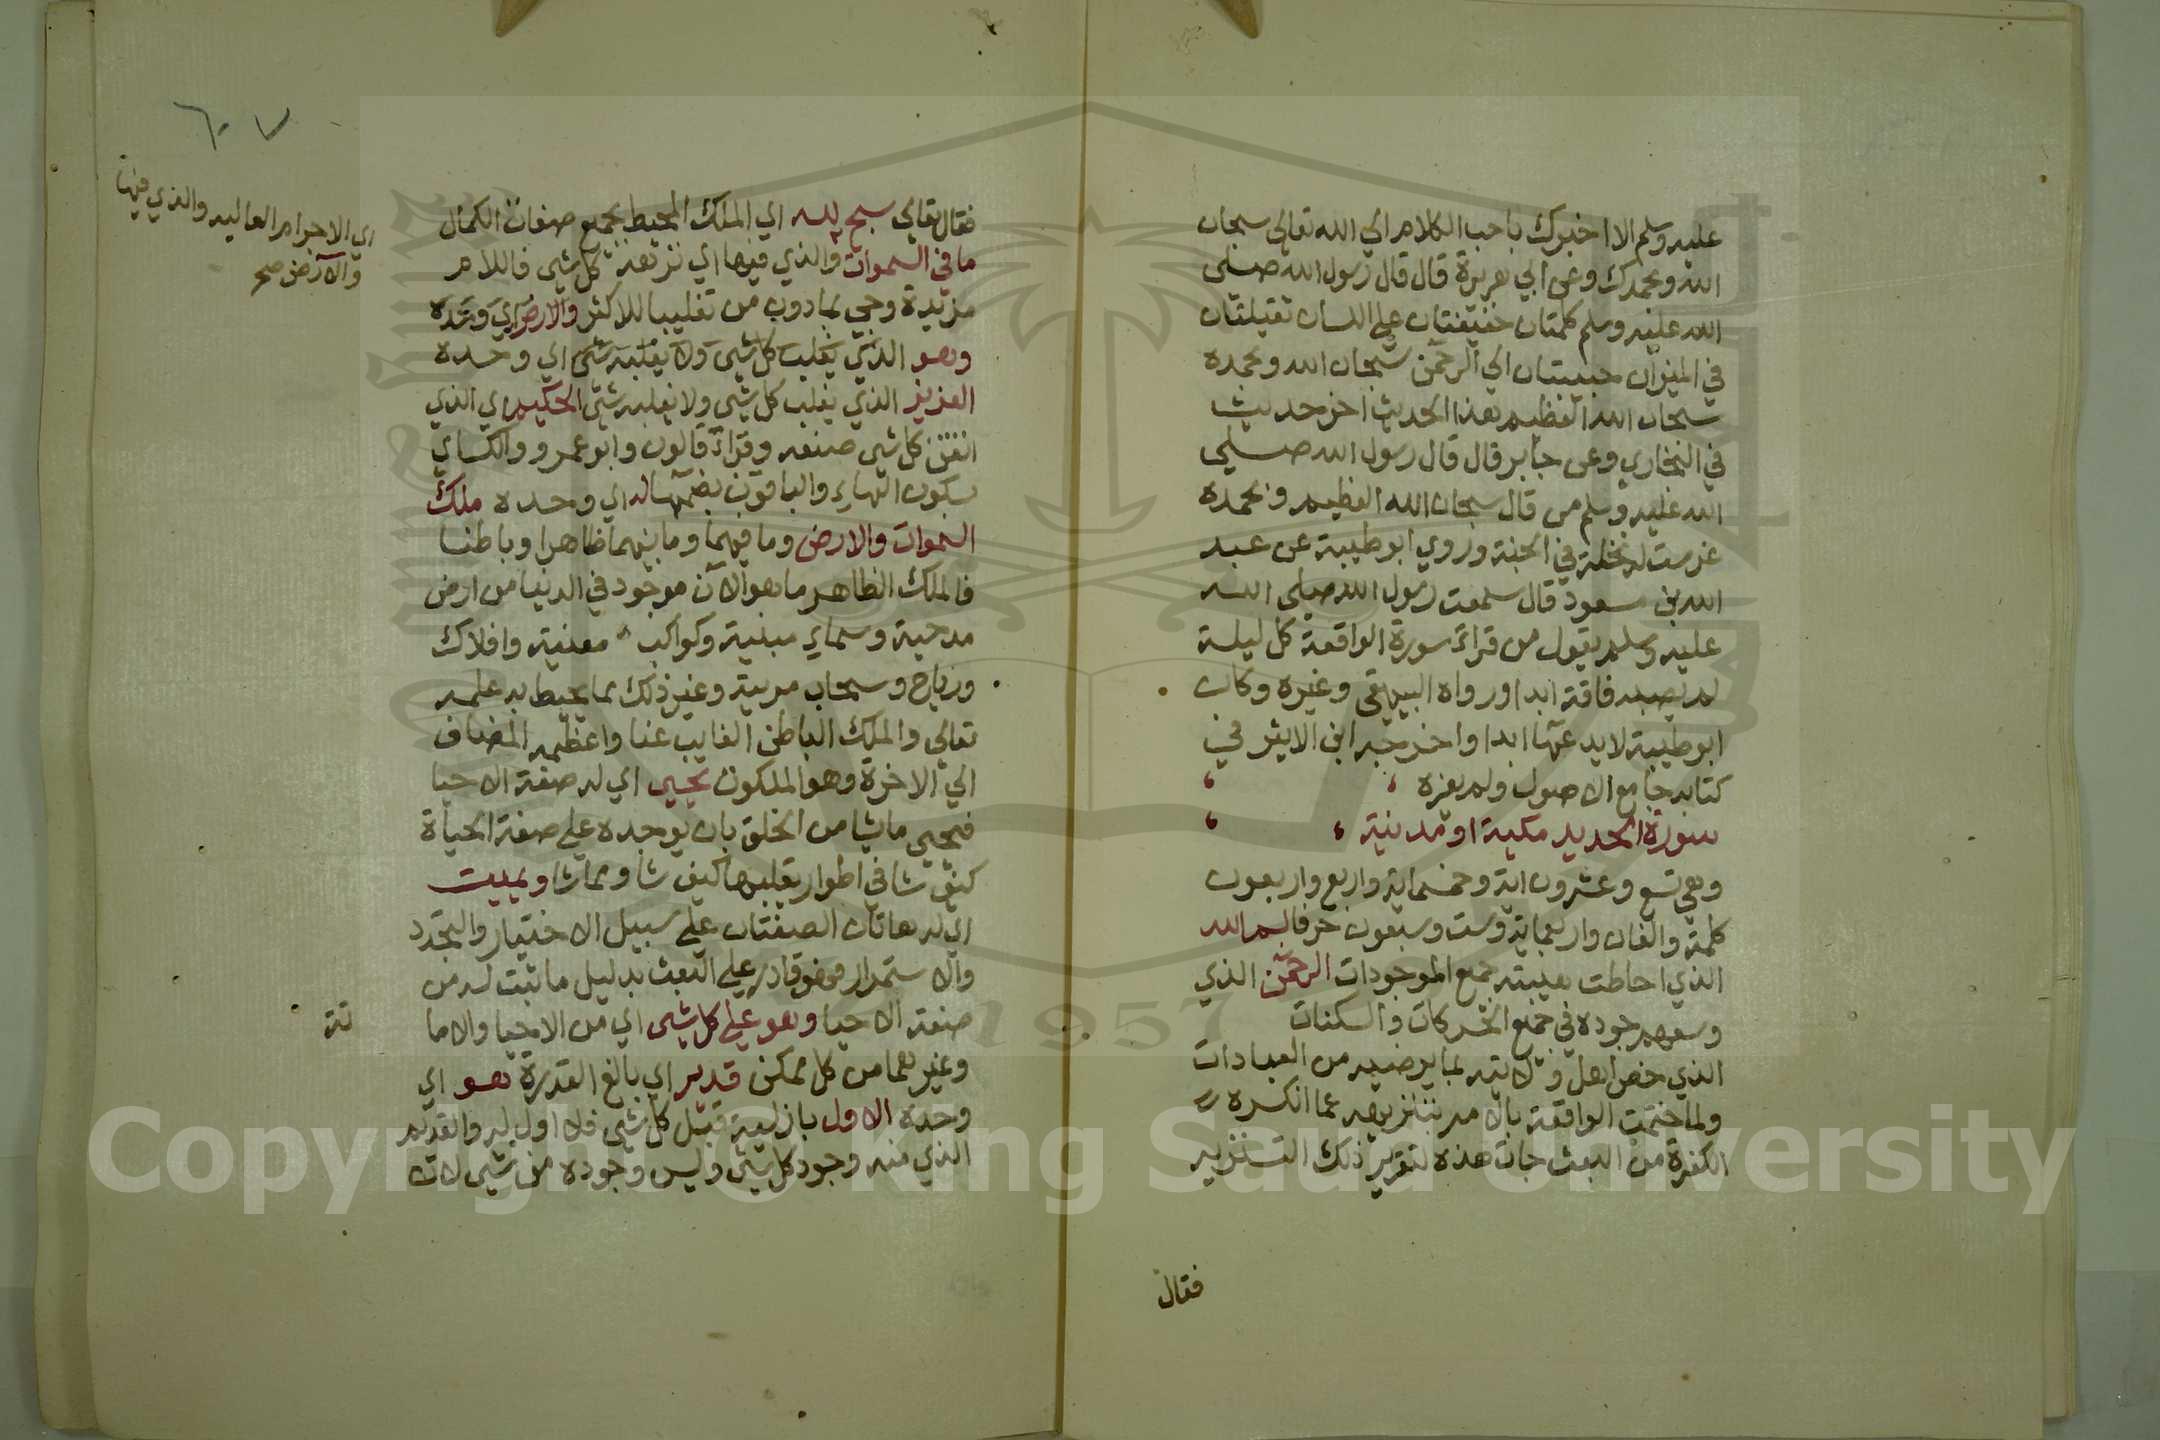 عليه وسلم الا اخبرك باحب الكلام الي الله تعالي سبحان
الله وبحمدك وعن ابي هريرة قال قال رسول الله صلي
الله عليه وسلم كلمتان خفيفتان علي اللسان ثقيلتان
في الميزان حبيبتان الي الرحمن سبحان الله وبحمده
سبحان الله العظيم هذا الحديث اخر حديث
في البخاري وعن جابر قال قال رسول الله صلي
الله عليه وسلم من قال سبحان الله العظيم وبحمده
غرست له نخلة في الجنة وروي ابو طيبة عن عبد
الله بن مسعود قال سمعت رسول الله صلي الله
عليه وسلم يقول من قراء سورة الواقعة كل ليلة
لم يصبه فاقة ابدا ورواه البيهقي وغيره وكان
ابو طيبة لا يدعها ابدا واخرجه ابن الاثير في
كتابه جامع الاصول ولم يعزه
سورة الحديد مكية او مدنية
وهي تسع وعشرون اية وخمسماية واربع واربعون
كلمة والفان واربعماية وست وسبعون حرفا بسم الله
الذي احاطت هيبته جميع الموجودات الرحمن الذي
وسعهم جوده في جميع الحركات والسكنات
الذي خص اهل ولايته بما يرضيه من العبادات
ولما ختمت الواقعة بالامر بتنزيهه عما انكره
الكفرة من البعث جات هذه لتقرير ذلك التنزيه
فقال
٦٠٧
فقال تعالي سبح لله اي الملك المحيط بجميع صفات الكمال
ما في السموات والذي فيها اي نزهه كل شي فاللام
مزيدة وجي بما دون من تغليبا للاكثر والارض اي وحده
وهو الذي يغلب كل شي ولا يغلبه شي اي وحده
العزيز الذي يغلب كل شي ولا يغلبه شي الحكيم اي الذي
اتقن كل شي صنعه وقراء قالون وابو عمرو والكساي
بسكون الهاء والباقون بضمها له اي وحده ملك
السموات والارض وما فيهما وما بينهما ظاهرا وباطنا
فالملك الظاهر ما هو الان موجود في الدنيا من ارض
مدحية وسماء مبنية وكواكب مضية وافلاك
ورياح وسحاب مرئية وغير ذلك مما يحيط به علمه
تعالي والملك الباطن الغايب عنا واعظمه المضاف
الي الاخرة وهو الملكوت يحيي اي له صفة الاحيا
فيحيي ما يشا من الخلق بان يوجده علي صفة الحياة
كيف شا في اطوار يقلبها كيف شا ومما شا ويميت
اي له هاتان الصفتان علي سبيل الاختيار والتجدد
والاستمرار فهو قادر علي البعث بدليل ما ثبت له من
صفة الاحيا وهو علي كل شي اي من الاحيا والاما
تة
وغيرهما من كل ممكن قدير اي بالغ القدرة هو اي
وحده الاول بازليته قبل كل شي فلا اول له والقديم
الذي منه وجود كل شي وليس وجوده من شي لان
اي الاجرام العاليه والذي فيها
والارض صح
Copyright © King Saud University
1957